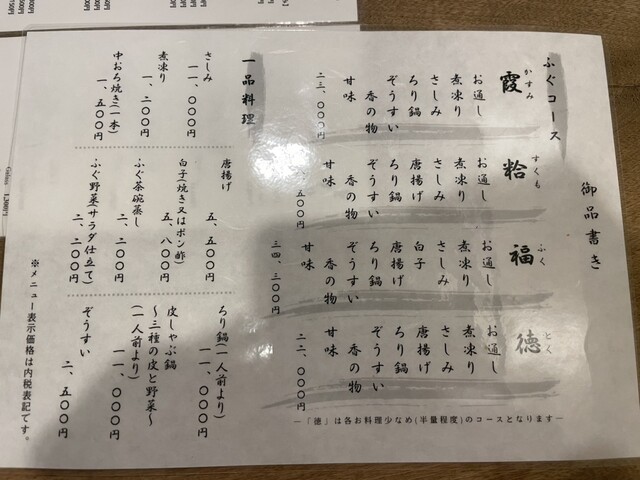 御品書き
ふぐコース
霞
かすみ
お通し
煮凍り
さしみ
ろり鍋
ぞうすい
香の物
甘味
二三、〇〇〇円
粭
すくも
お通し
煮凍り
さしみ
唐揚げ
ろり鍋
ぞうすい
香の物
甘味
五〇〇円
福
ふく
お通し
煮凍り
さしみ
白子
唐揚げ
ろり鍋
ぞうすい
香の物
甘味
三四、三〇〇円
徳
とく
お通し
煮凍り
さしみ
唐揚げ
ろり鍋
ぞうすい
香の物
甘味
二二、〇〇〇円
―「徳」は各お料理少なめ(半量程度)のコースとなります―
一品料理
さしみ
一一、〇〇〇円
煮凍り
一、二〇〇円
中おろ焼き(一本)
一、五〇〇円
唐揚げ
五、五〇〇円
白子(焼き又はポン酢)
五、八〇〇円
ふぐ茶碗蒸し
二、二〇〇円
ふぐ野菜サラダ仕立て)
二、二〇〇円
ろり鍋(一人前より)
一一、〇〇〇円
皮しゃぶ鍋
〜三種の皮と野菜〜
(一人前より)
一一、〇〇〇円
ぞうすい
二、五〇〇円
※メニュー表示価格は内税表記です。
Glass
1,300円